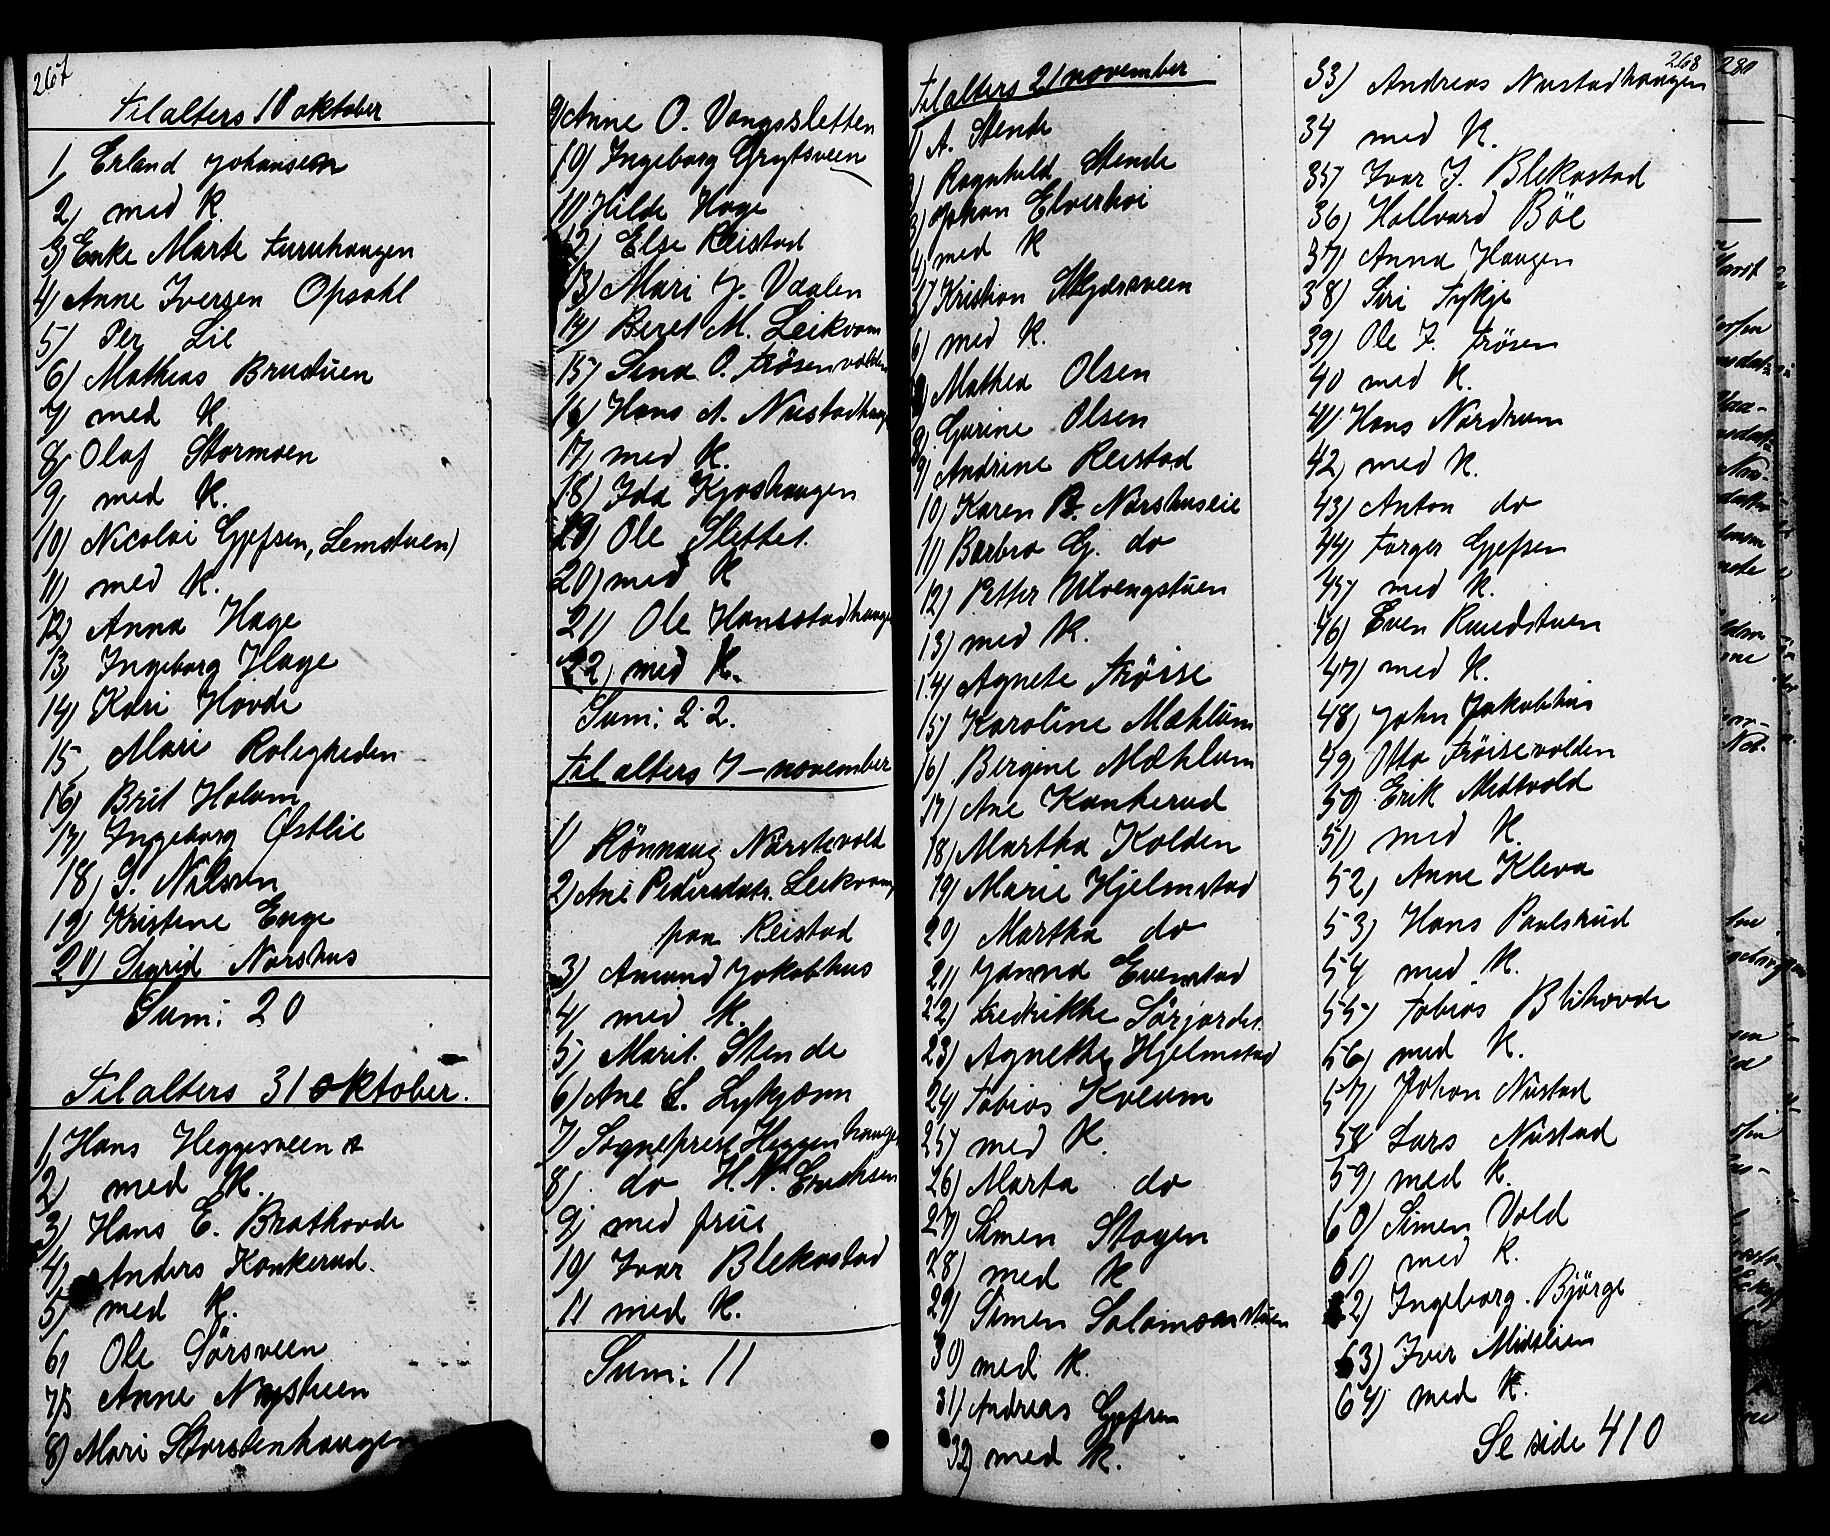 267
Til alters 10 oktober
1, Erland Johansen
2) med K.
3) Enke Marte Furuhaugen
4) Anne Iversen Opsahl
5) Per Lie
6) Mathias Brustuen
7) med K
8, Olaf Stormoen
9, med K.
10) Nicolai Gjefsen, Lemstuen)
11) med K.
12) Anna Hage
13) Ingeborg Hage
14) Kari Hovde
15, Mari Roligheden
16) Brit Holom
17) Ingeborg Østlie
18) S. Nilsen
19) Kristene Enge
20) Sigrid Norshus
Sum: 20
Til alters 31 oktober.
1, Hans Heggesveen
2) med K.
3) Hans E. Brathovde
4) Anders Konkerud.
5) med K.
6) Ole Sørsveen
7) Anne Nystuen
8) Mari Storstenhaugen
9) Anne O. Vangssletten
10) Ingeborg Grytsveen
11) Hilde Hage
12) Else Reistad
13) Mari J. Vaalen
14) Beret M. Leikvam
15) Lina O. Frøsenvolden
16) Hans A. Nustadhaug
17) med K.
18) Ida Kjoshaugen
19) Ole Slettet.
20) med K
21) Ole Hanestadhauge
22, med K.
Sum: 22.
Til alters 7 - november
1) Rønnaug Nørstevold
2) Ane Pedersdatr. Leikvam,
paa Reistad
3) Amund Jakobhus
4) med K.
5) Marit. Stende
6) Ane L. Lykjøm
7) Sogneprest Heggenhaugen
8) do H. N. Erichsen
9) med frue
10) Ivar Blekastad
11 med K.
Sum: 11
Til alters 21 november
1) A. Stende
2) Ragnhild Stende
3) Johan Elverhøi
4) med K
5) Kristian Skydsveen
6) med K.
7) Mathea Olsen
8) Gurine Olsen
9) Andrine Reistad
10) Karen B. Norshuseie
11) Barbro G. do
12) Petter Ulvengstuen
13) med K.
14) Agnete Frøise
15) Karoline Mæhlum
16) Bergine Mæhlum
17) Ane Konkerud
18) Martha Kolden
19) Marie Hjelmstad
20) Martha do
21) Janna Evenstad
22) Fredrikke Sørjordet.
23) Agnethe Hjelmstad
24) Tobias Kveum
25) med K.
26) Marta do
27) Simen Stagen
28) med K
29) Simen Salomonstuen
30) med K.
31) Andreas Gjefsen
32) med K.
268
33) Andreas Nustadhaugen
34 med K.
35) Ivar J. Blekastad
36) Hallvard Bøe
37) Anna Haugen
38) Siri Fykje
39) Ole J. Frøsen
40 med K.
41) Hans Nordrum
42) med K.
43) Anton do
44) Torger Gjefsen
45) med K.
46) Even Ruudstuen
47) med K.
48, John Jakobhus
49, Otto Frøisevolden
50) Erik Midtvold
51) med K.
52, Anne Kleva
53) Hans Paulsrud
54 med K.
55) Tobias Blihovde
56) med K.
57) Johan Nustad
58 Lars Nustad
59) med K.
60) Simen Vold
61) med K.
62) Ingeborg. Bjørge
63) Iver Midtlien
64) med K.
Se side 410